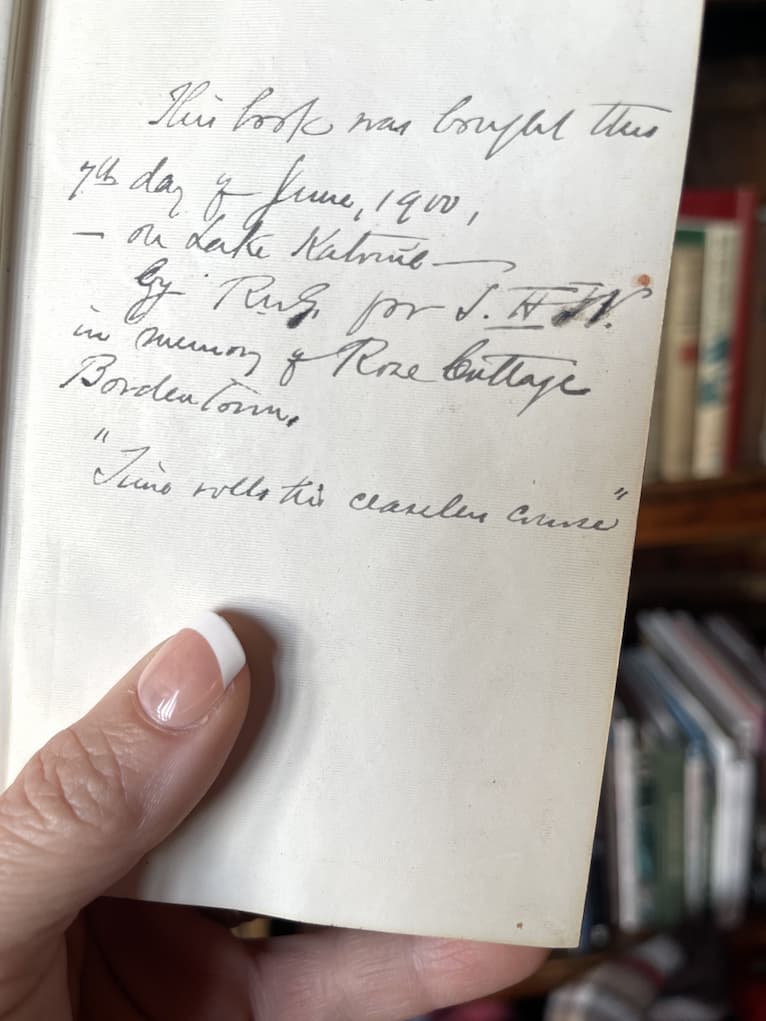 This book was bought this
7th day of June, 1900,
— on Lake Katrine —
by R.W.G. for S. H. W.
in memory of Rose Cottage
Bordentown.
"Time rolls his ceaseless course"